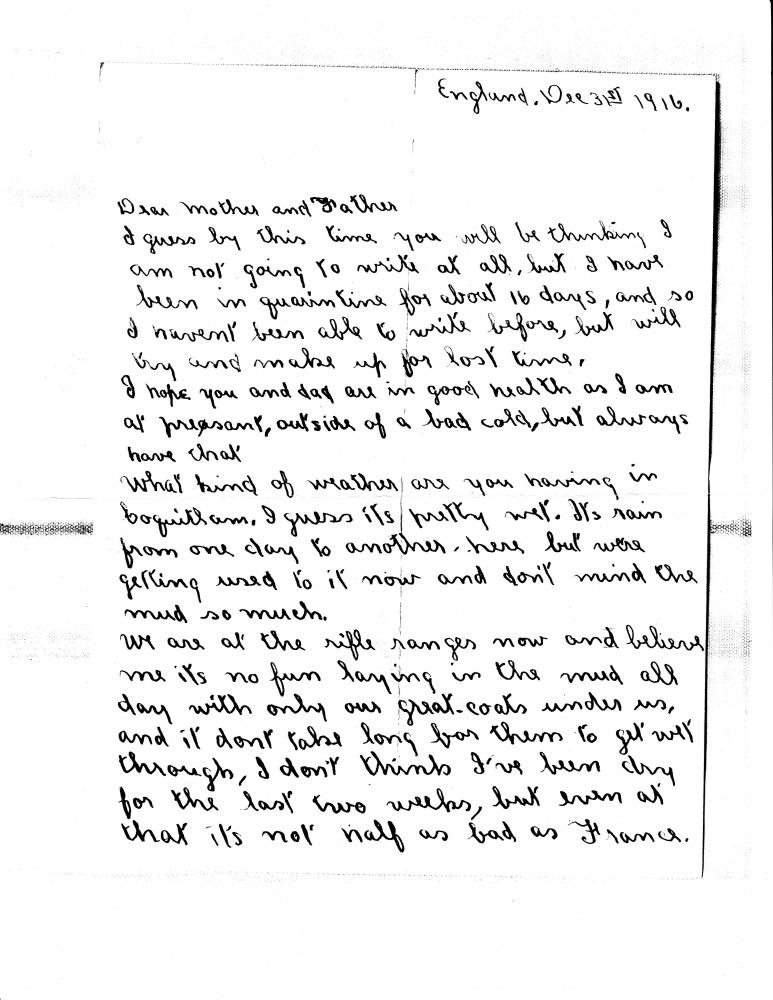 England. Dec 31st 1916.
Dear Mother and Father
I guess by this time you will be thinking I
am not going to write at all, but I have
been in quarintine for about 16 days, and so
I havent been able to write before, but will
try and make up for lost time.
I hope you and dad are in good health as I am
at preasant, outside of a bad cold, but always
have that
What kind of weather are you having in
Coquitlam. I guess its pretty wet. Its rain
from one day to another here but were
getting used to it now and don't mind the
mud so much.
We are at the rifle ranges now and believe
me its no fun laying in the mud all
day with only our great-coats under us,
and it dont take long for them to get wet
through, I don't think I've been dry
for the last two weeks, but even at
that it's not half as bad as France.